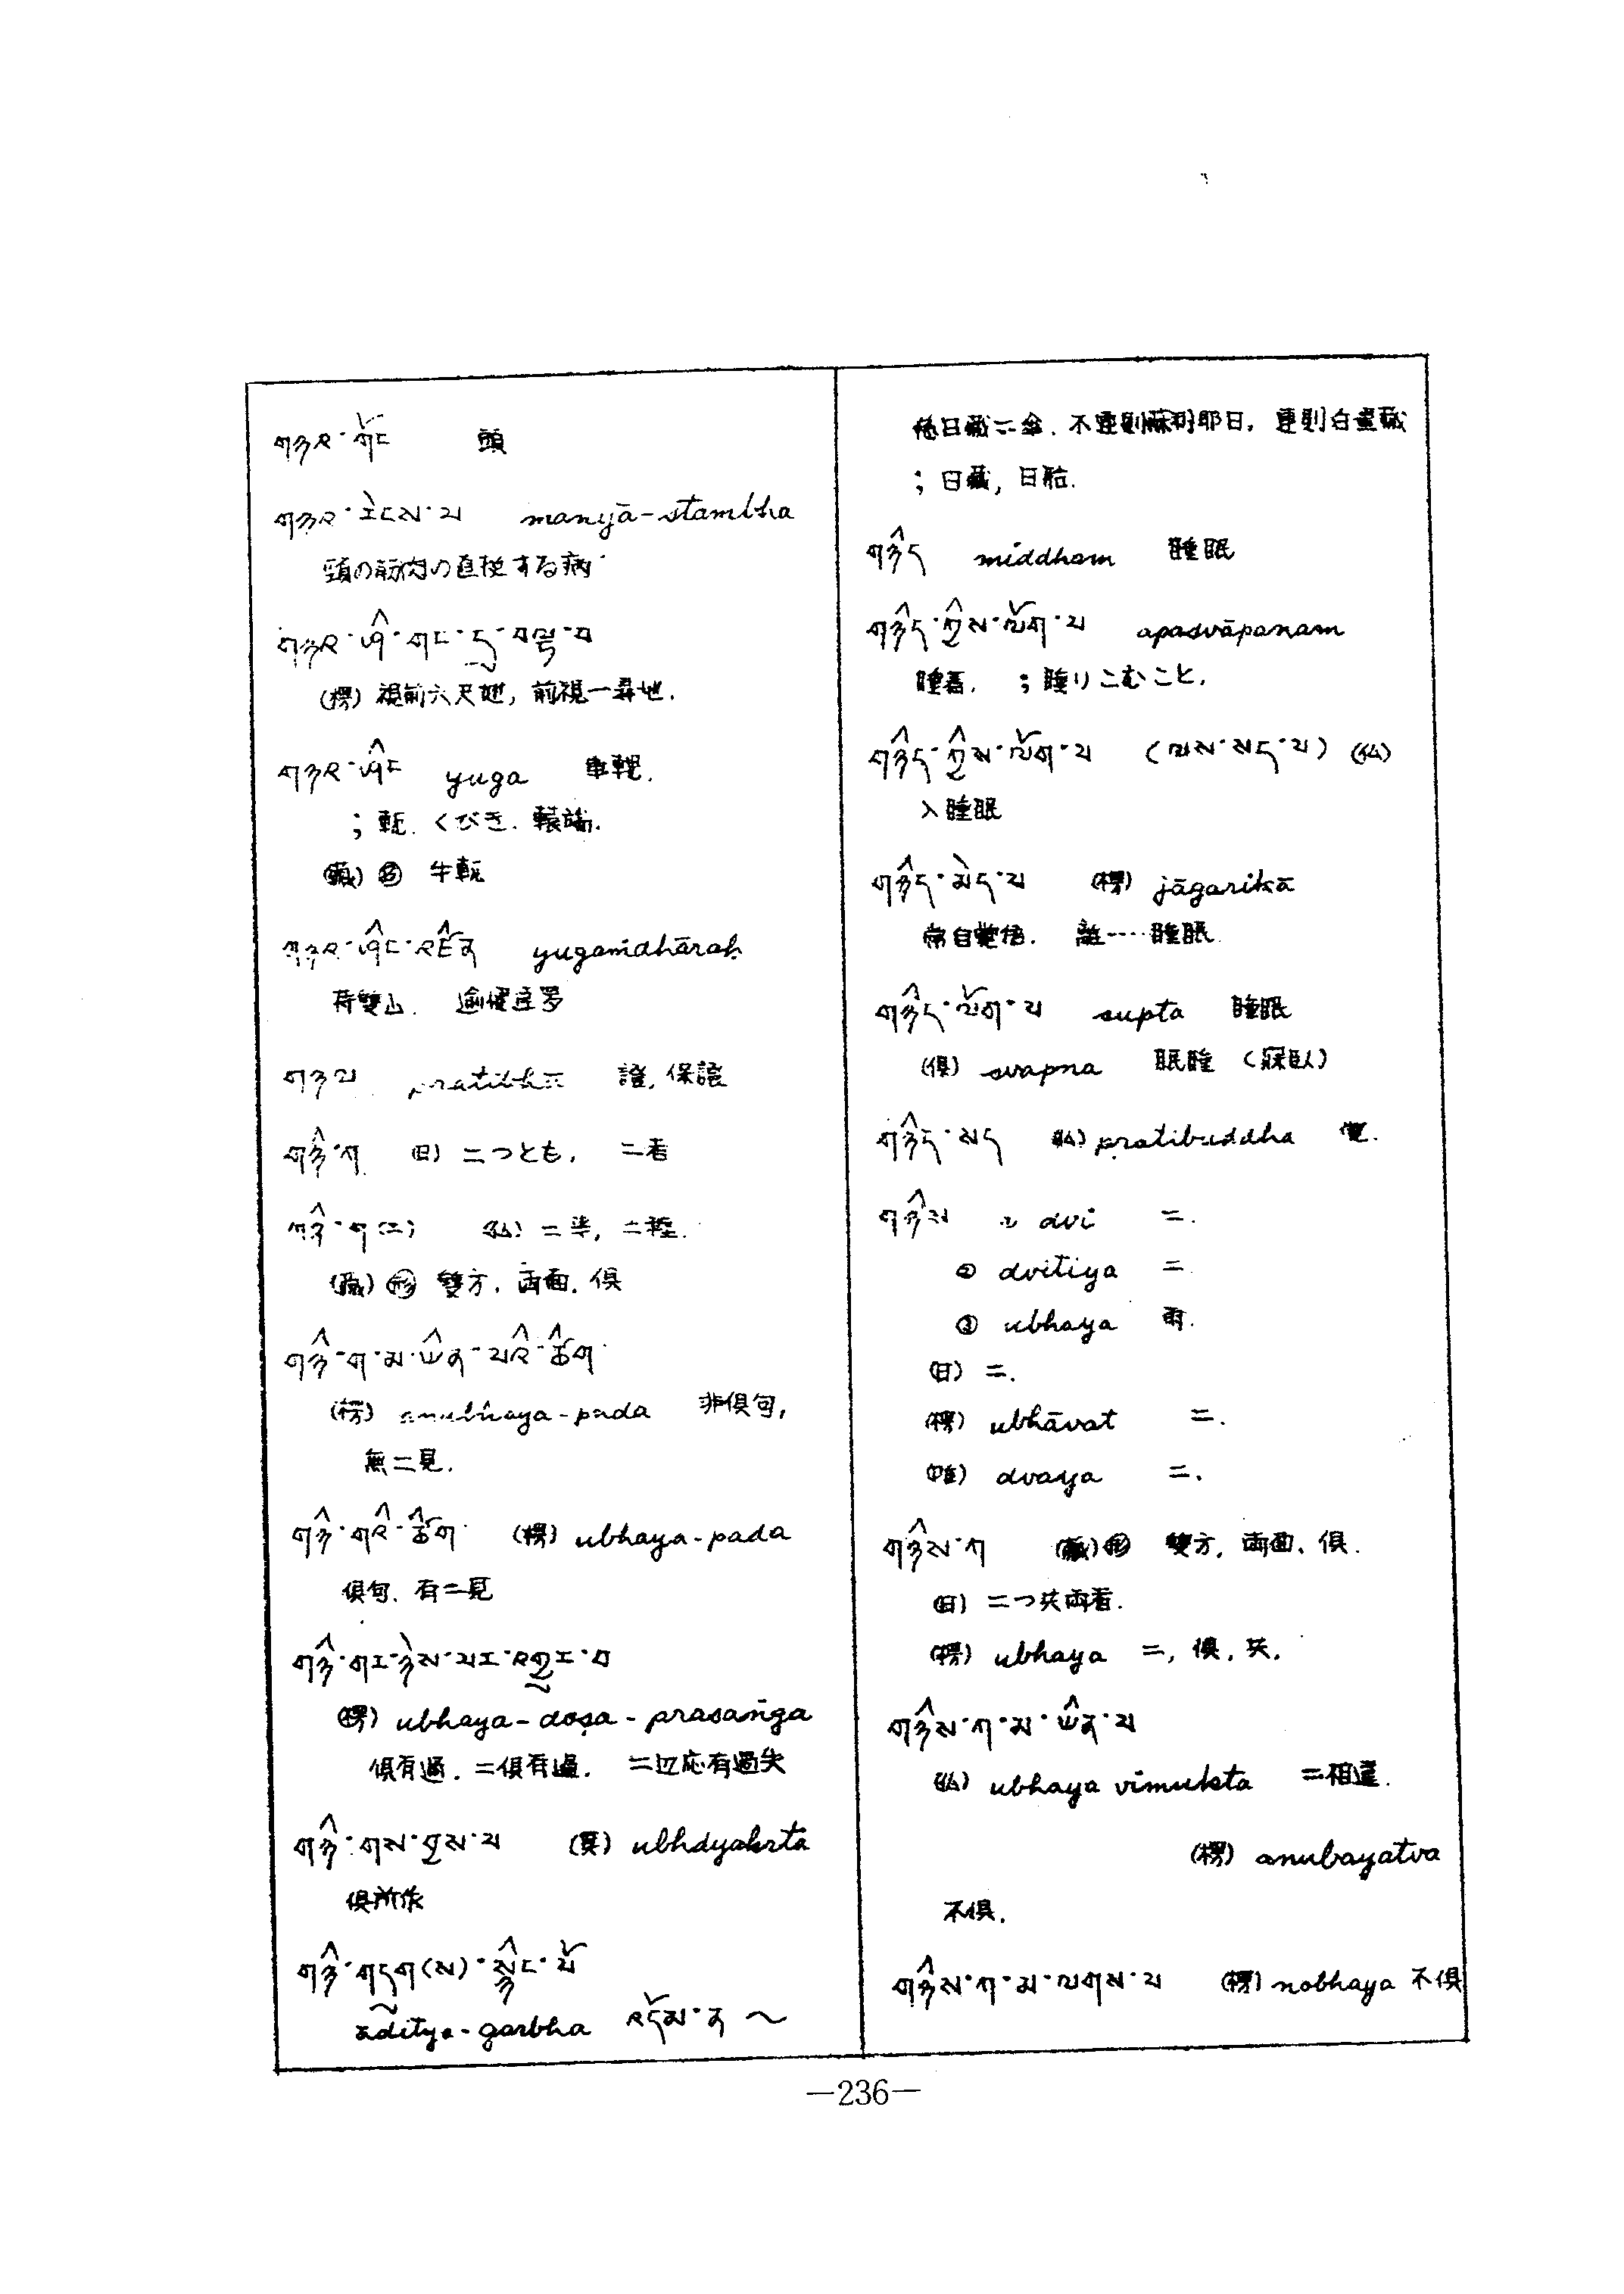 གཉར་གོང 頭
གཉར་རེངས་པ manyā-stambha
頸の筋肉の直梗する病
གཉར་ཤིང་གང་ཙམ་དུ་བལྟ་བ
(楞) 視前六尺地, 前視一尋地.
གཉར་ཤིང yuga 車軛.
; 軛. くびき. 轅端.
(藏) 名 牛軛
གཉར་ཤིང་འཛིན yugaṁdhāraḥ
荷雙山. 逾健達羅
གཉའ 證, 保證
གཉི་ག (日) 二つとも, 二者
གཉི་ག(ང) (仏) 二半, 二種.
(藏) 形 雙方, 両面. 俱
གཉི་ག་མ་ཡིན་པའི་ཚིག
(楞) anubhaya-pada 非俱句,
無二見.
གཉི་གའི་ཚིག (楞) ubhaya-pada
俱句. 有二見
གཉི་གར་ཉེས་པར་འགྱུར་བ
(楞) ubhaya-doṣa-prasaṅga
俱有過. 二俱有過. 二辺応有過失
གཉི་གས་བྱས་པ ubhayakṛta
俱所作
གཉི་གདག(ས)་སྙིང་པོ
āditya-garbha འདོམ་ན ～
不連則蘇利耶日, 連則白晝藏
; 日藏, 日胎.
གཉིད middham 睡眠
གཉིད་ཀྱིས་ལོག་པ apasvāpanam
睡著. ; 睡りこむこと.
གཉིད་ཀྱིས་ལོག་པ (ལས་སད་པ) (仏)
入睡眠
གཉིད་མེད་པ (楞) jāgarikā
常自覺悟. 離‥‥睡眠.
གཉིད་ལོག་པ supta 睡眠
(俱) svapna 眠睡 (寐臥)
གཉིད་སད (仏) pratibuddha 覚.
གཉིས ① dvi 二.
② dvitiya 二.
③ ubhaya 両.
(日) 二.
(楞) ubhāvat 二.
(唯) dvaya 二.
གཉིས་ཀ (藏) 形 雙方, 両面、俱.
(日) 二つ共両者.
(楞) ubhaya 二, 俱, 共.
གཉིས་ཀ་མ་ཡིན་པ
(仏) ubhaya vimukta 二相違.
(楞) anubayatva
不俱.
གཉིས་ཀ་མ་ལགས་པ (楞) nobhaya 不俱
—236—